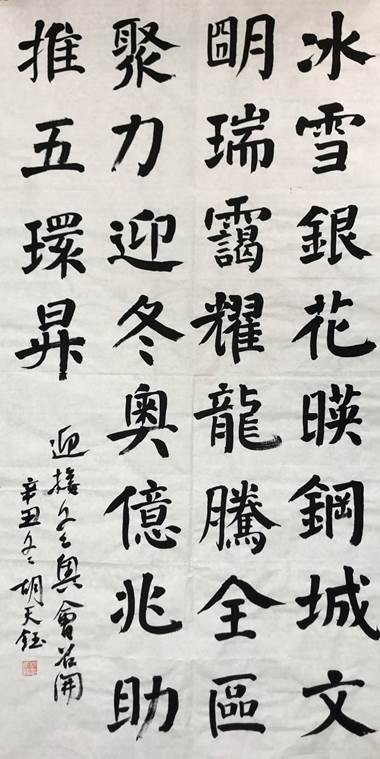 冰雪銀花暎鋼城文
朙瑞靄耀龍騰全區
聚力迎冬奧億兆助
推五環昇
迎接冬奧會召開
辛丑冬胡天鈺